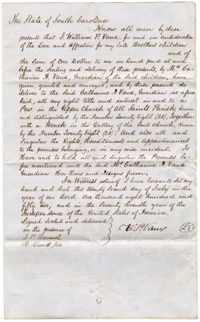 The State of South Carolina
Know all men by these
presents that I William P. Vaux for and in consideration
of the Love and Affection for my late Brothers children
and of
the sum of One Dollar to me in hand paid at and be-
fore the sealing and delivery of these presents by Mrs Ca-
tharine H. Vaux, Guardian of the said children, have
given, granted and conveyed, and by these presents do
deliver to the said Catharine H. Vaux, Guardian as afore-
said, all my right title and interest in and to a
Pew in the Upper Church of All Saints Parish, known
and distinguished by the Number Twenty Eight (28). Together
with a in the Gallery of the said Church, known
by the Number Twenty Eight (28); And also all and
Singular the Rights, Hereditaments and appurtenances
to the premises belonging, or in any wise incident. To
Have and to hold all and singular the Premises be-
fore mentioned unto the said Mrs Catharine H. Vaux
Guardian her Heirs and Assigns forever.
In Witness whereof I have hereunto set my
hand and seal this twenty second day of July in the
year of our Lord one thousand eight hundred and
fifty two, and in the Seventy Seventh year of the
Independence of the United States of America.
Signed Sealed and delivered
in the presence of
W. P. Vaux